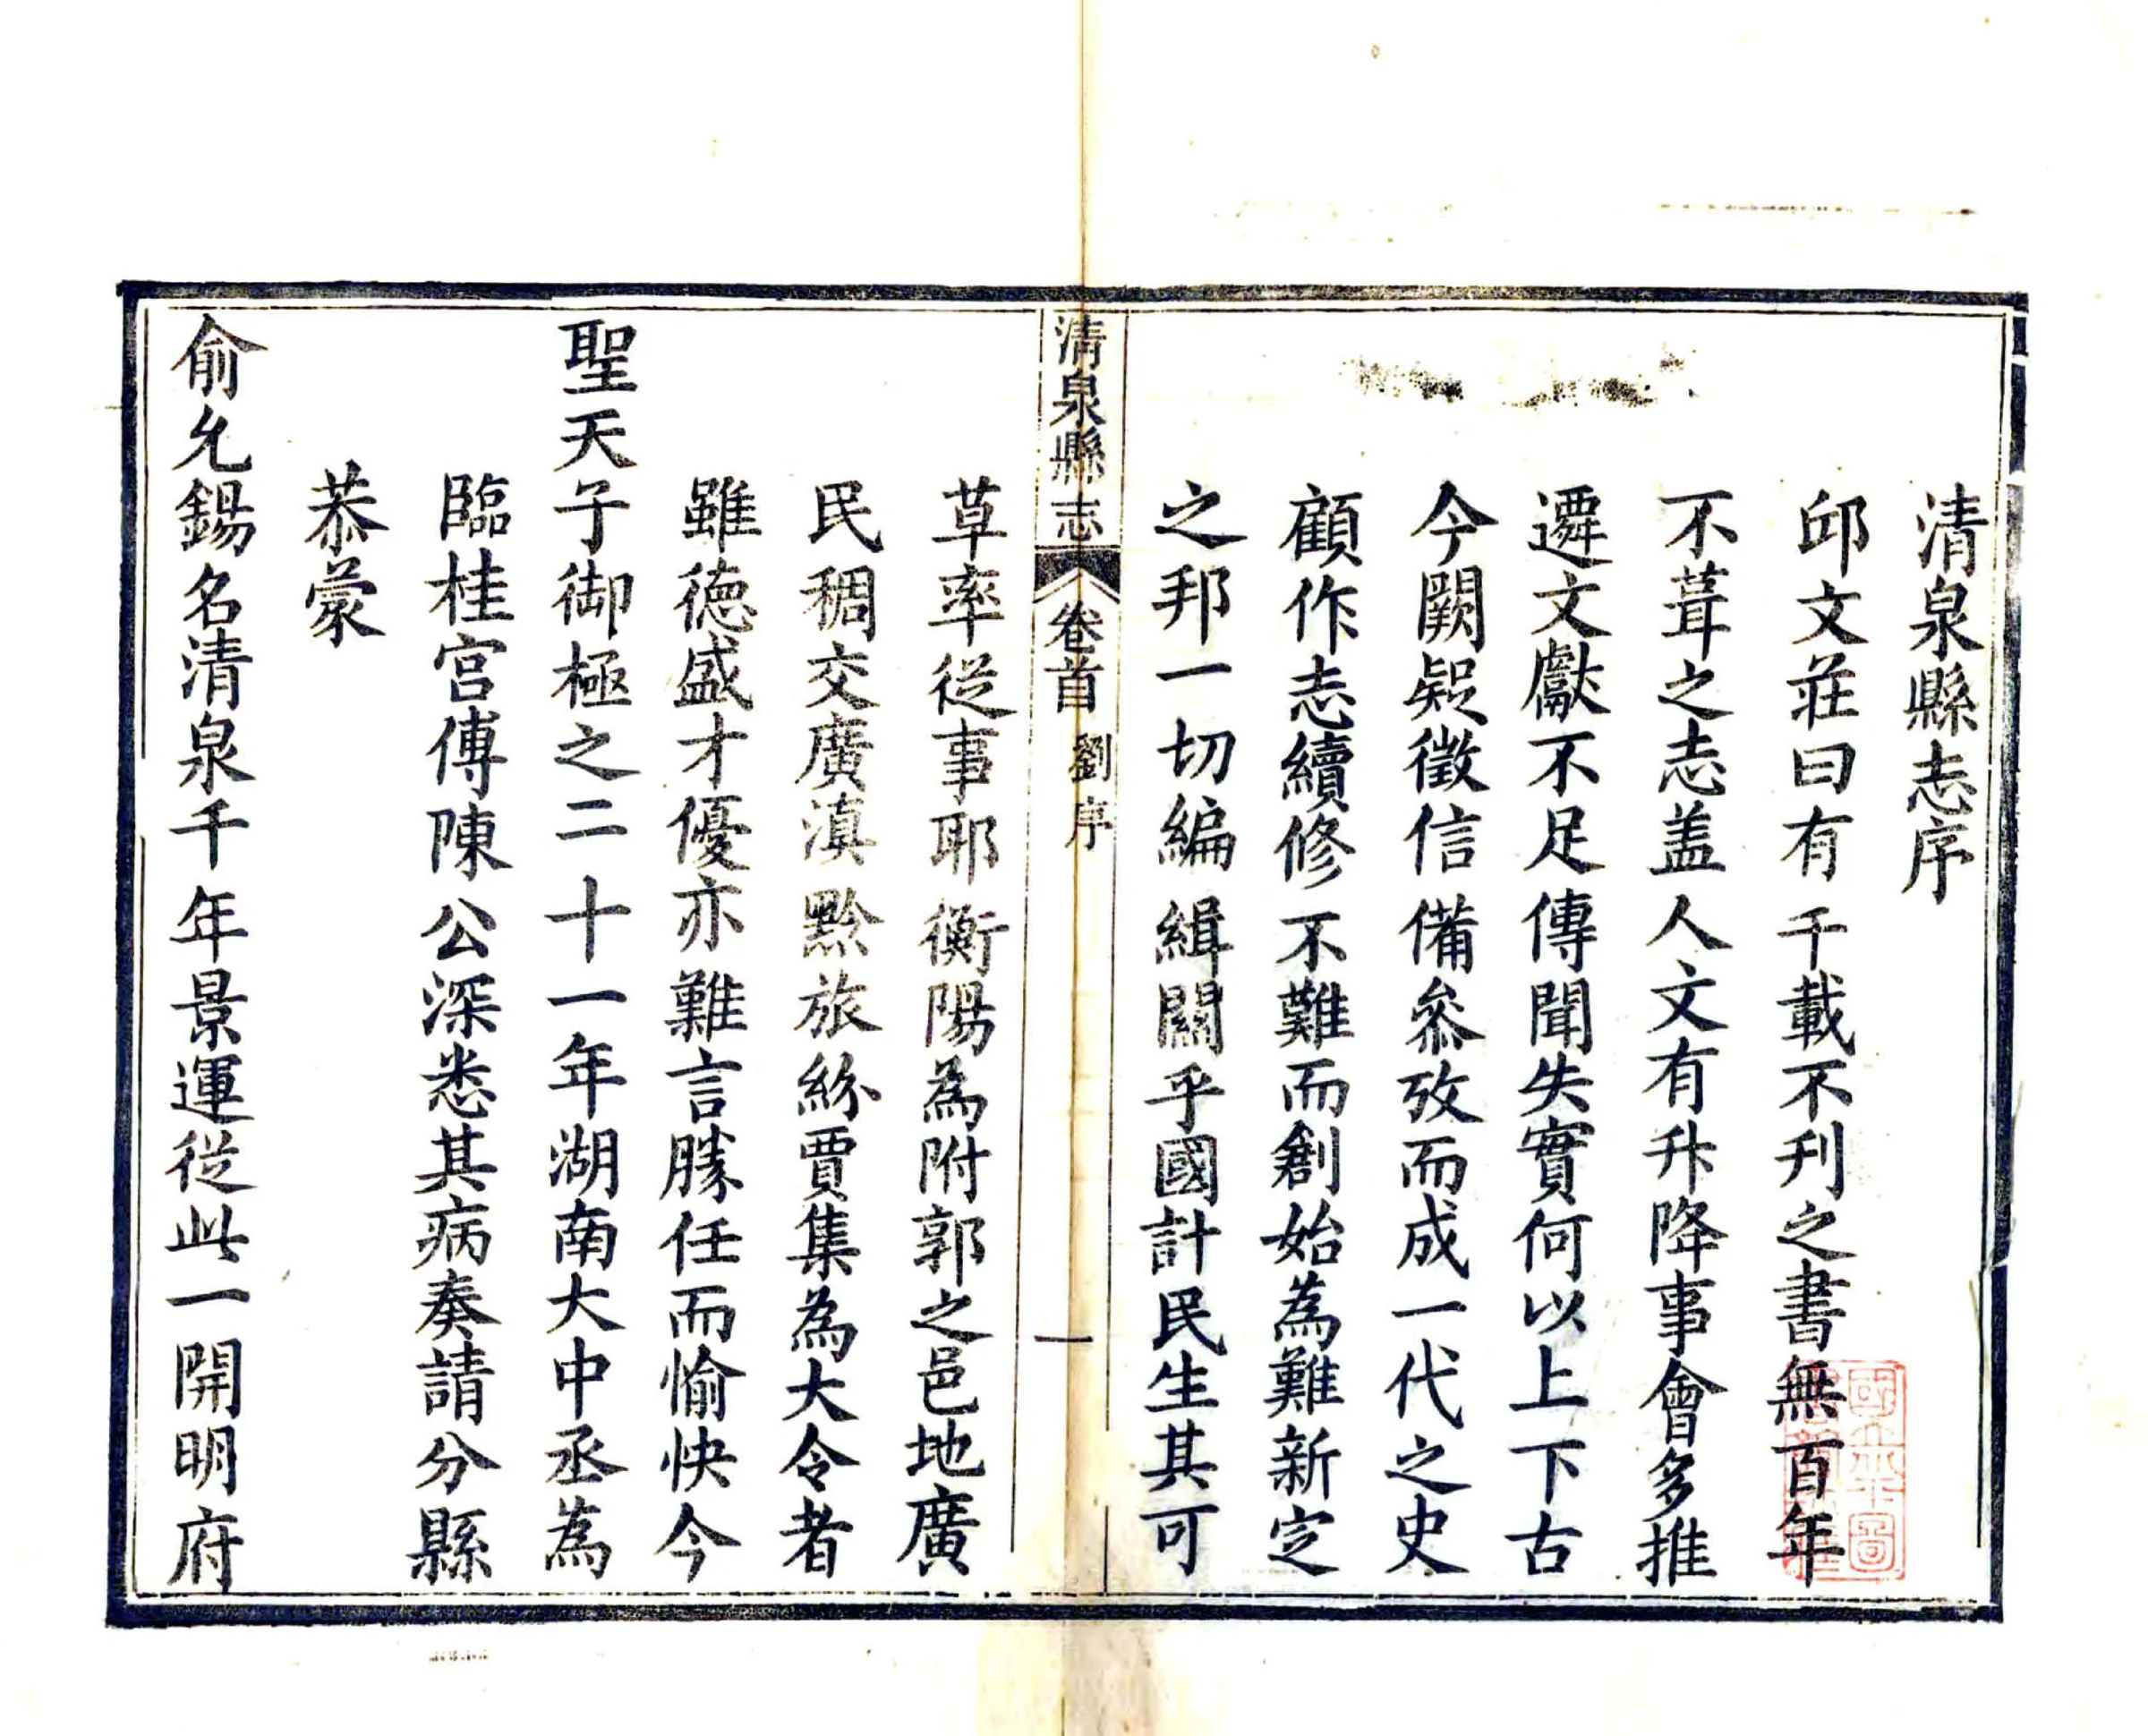 清泉縣志序
邱文莊曰有千載不刋之書無百年
不葺之志盖人文有升降事會多推
遷文獻不足傳聞失實何以上下古
今闕疑徵信備叅攷而成一代之史
顧作志續修不難而創始為難新定
之邦一切編緝關乎國計民生其可
清泉縣志
卷首
劉序
一
草率從事耶衡陽為附郭之邑地廣
民稠交廣滇黔旅紛賈集為大令者
雖德盛才優亦難言勝任而愉快今
聖天子御極之二十一年湖南大中丞為
臨桂宮傅陳公深悉其病奏請分縣
恭蒙
俞允錫名清泉千年景運從此一開明府